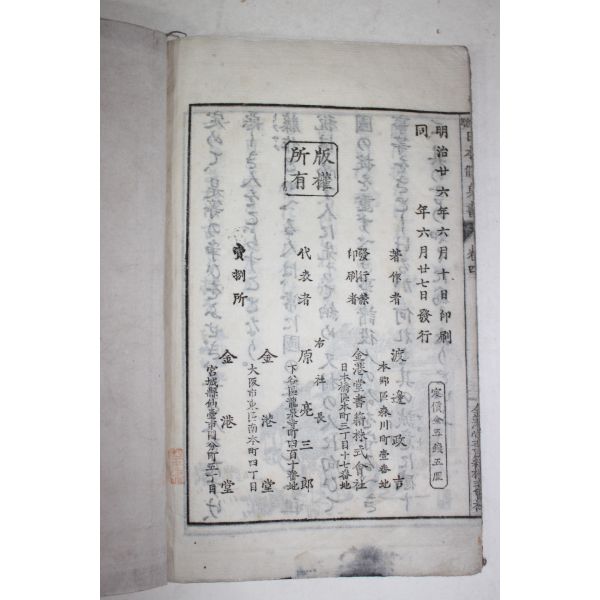 明治廿六年六月十日印刷
同 年六月廿七日發行
版權所有
定價金五錢五厘
著作者 渡邊政吉
本鄕區森川町壹番地
發行兼印刷者 金港堂書籍株式會社
日本橋區本町三丁目十七番地
右社長
代表者 原亮三郎
下谷區龍泉寺町四百十番地
金港堂
大阪市東區南本町四丁目
賣捌所
金港堂
宮城縣仙臺市國分町五丁目
卷四
金港堂書籍株式會社